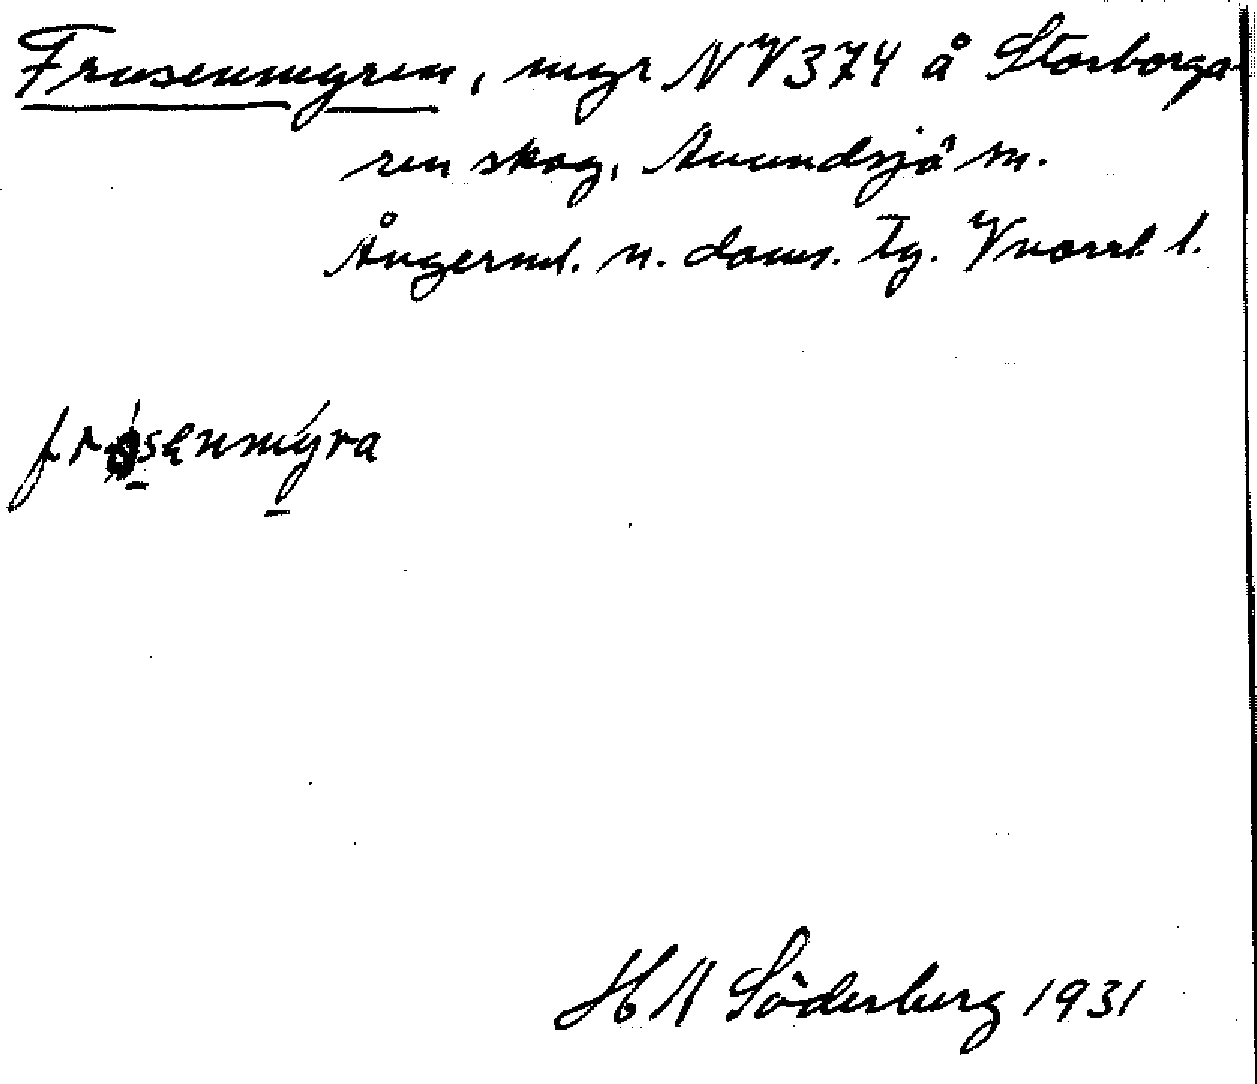 Frusenmyren, myr NV 374 å Storborga-
ren skog, Anundsjö sn.
Ångerml. n. doms. Tg. Vnorrl. l.
frosenmyra
H A Söderberg 1931